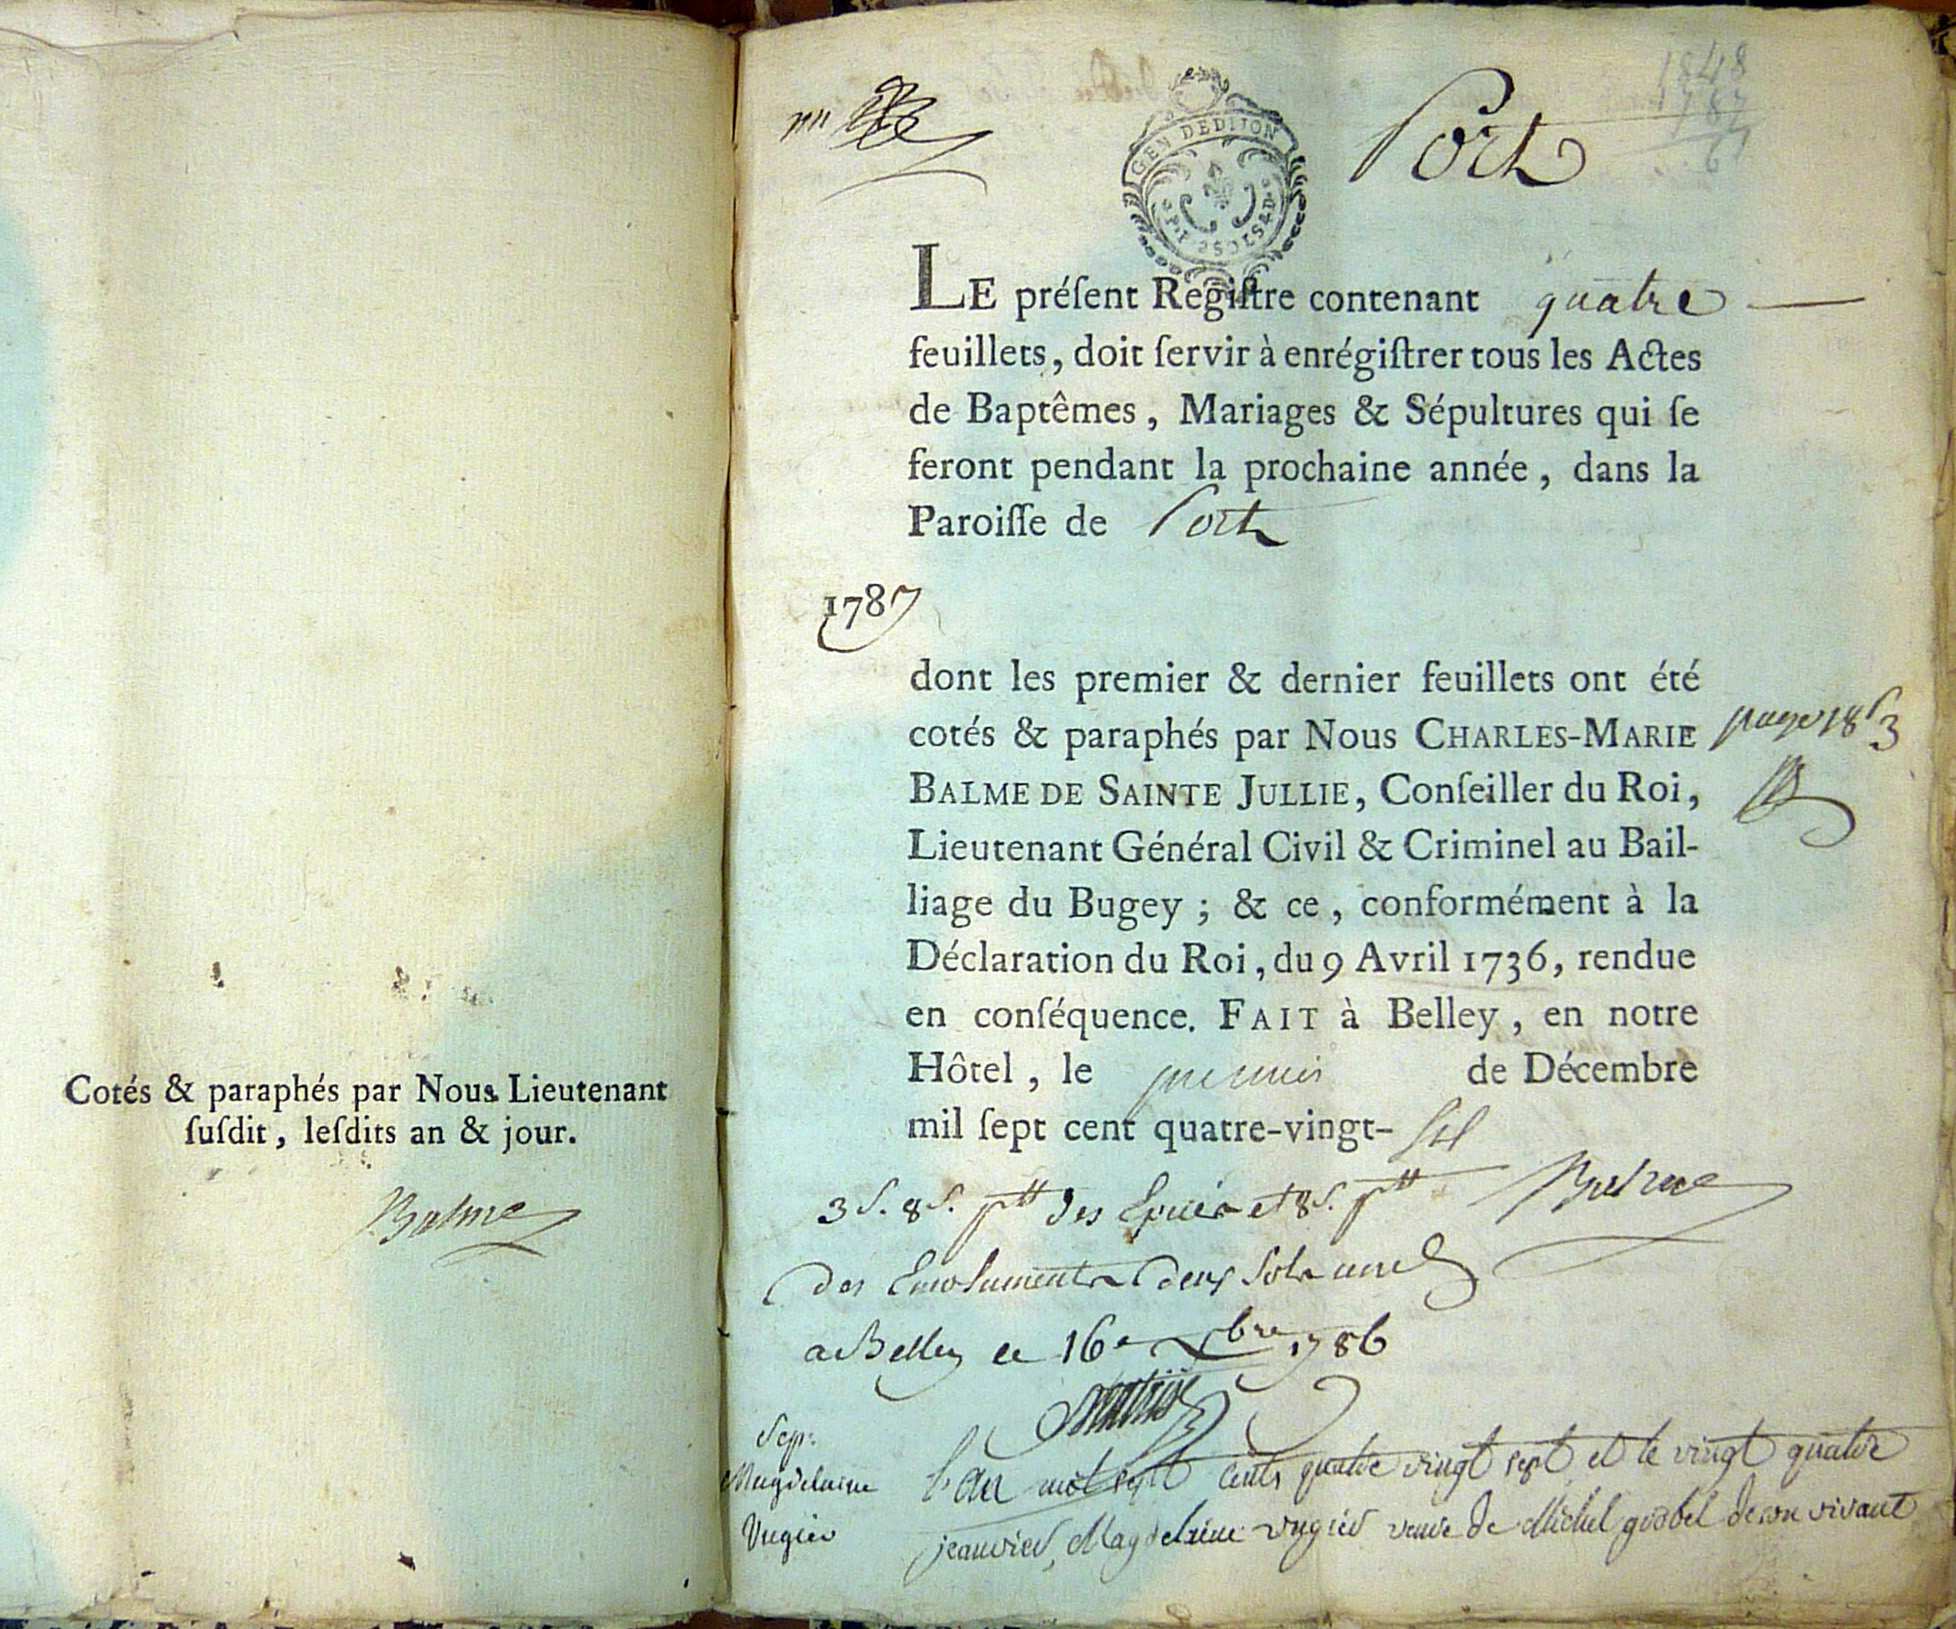 Cotés & paraphés par Nous Lieutenant
ſuſdit, leſdits an & jour.
Balme
1848
1787
61
GEN DEDIJON
Port
LE préſent Regiſtre contenant quatre
feuillets, doit ſervir à enrégiſtrer tous les Actes
de Baptêmes, Mariages & Sépultures qui ſe
feront pendant la prochaine année, dans la
Paroiſſe de Port
1787
dont les premier & dernier feuillets ont été
cotés & paraphés par Nous CHARLES-MARIE
BALME DE SAINTE JULLIE, Conſeiller du Roi,
Lieutenant Général Civil & Criminel au Bail-
liage du Bugey; & ce, conformément à la
Déclaration du Roi, du 9 Avril 1736, rendue
en conſéquence. FAIT à Belley, en notre
Hôtel, le premier de Décembre
mil ſept cent quatre-vingt- six
Balme
3s. 8d. ptt des Epices et 8s. ptt
des Emoluments deux sols
a Belley ce 16e Xbre 1786
Sep:
Magdelaine
Vugier
l'an mil sept cents quatre vingt sept et le vingt quatre
jeanvier, Magdelaine vugier veuve de Michel godbel de son vivant